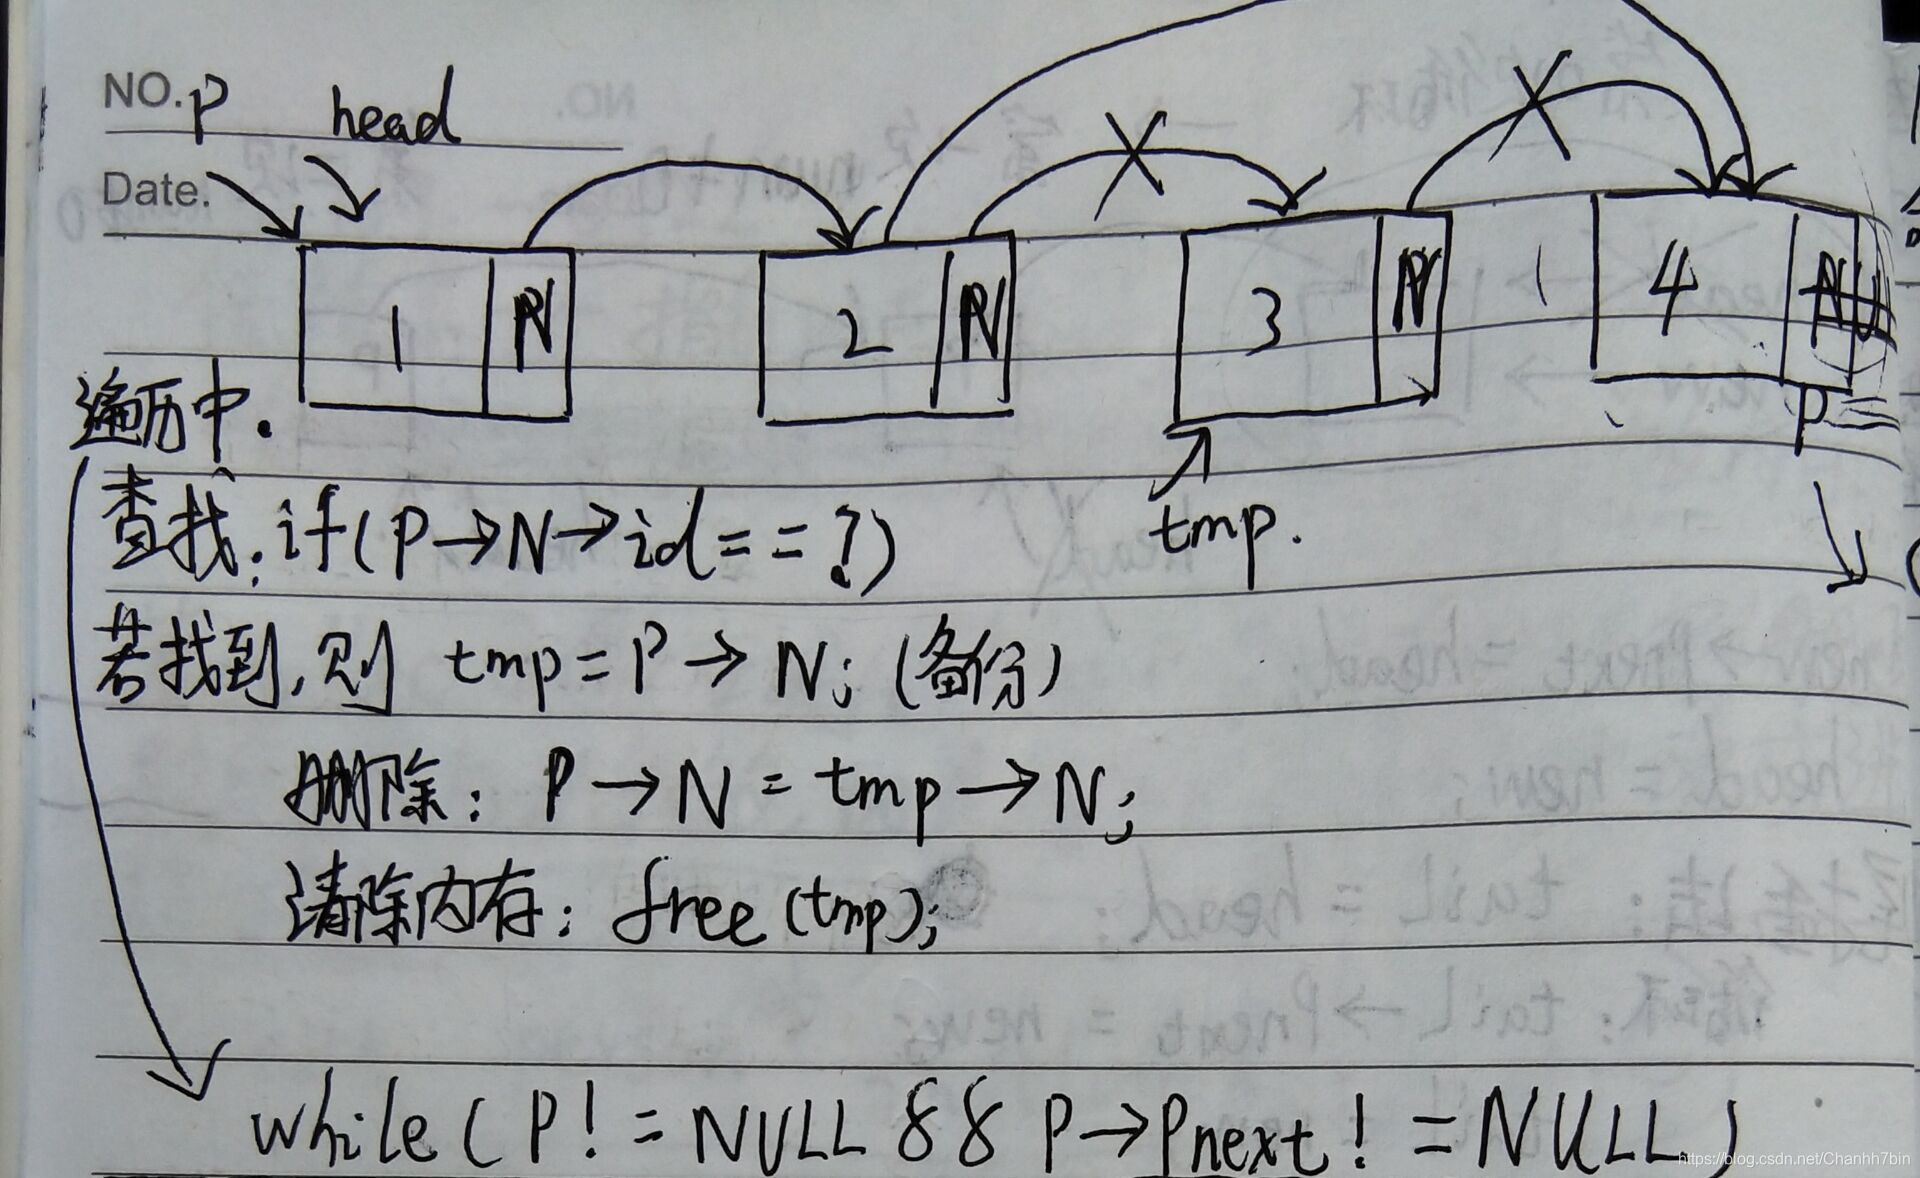 NO. P head
Date.
1 N 2 N 3 N 4 NU
遍历中.
P
查找: if(P→N→id==?)
tmp.
若找到,则 tmp=P→N; (备份)
删除: P→N=tmp→N;
清除内存: free(tmp);
while(P!=NULL && P→Pnext!=NULL)
https://blog.csdn.net/Chanhh7bin